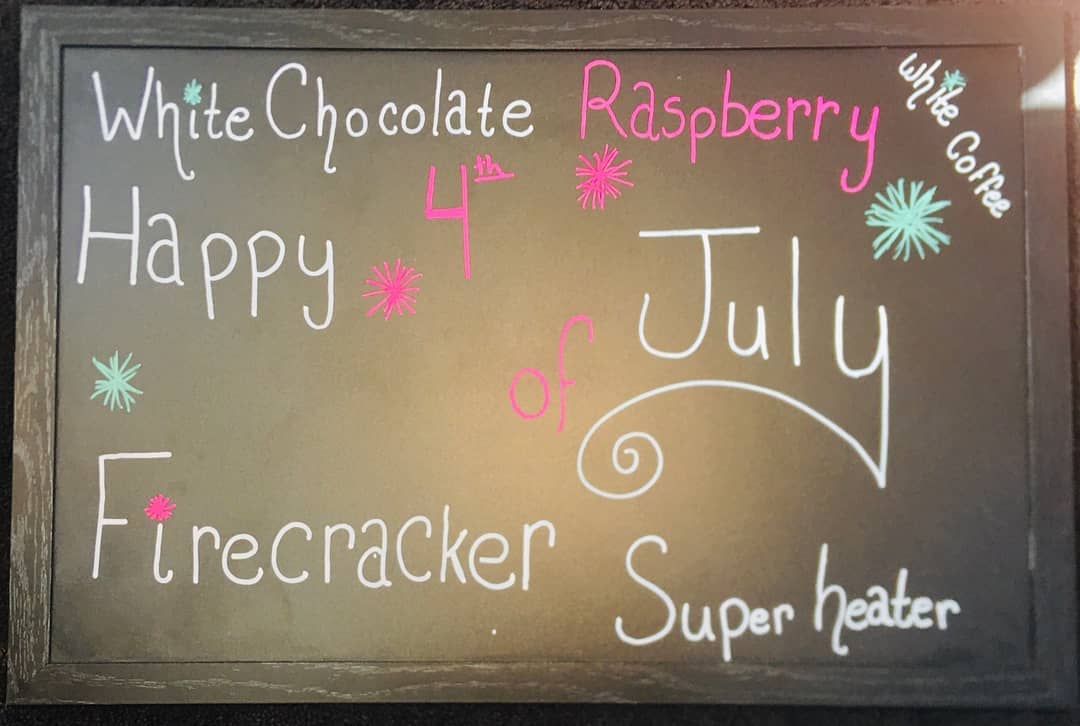 White Chocolate Raspberry
White Coffee
Happy 4th of July
Firecracker
Super heater